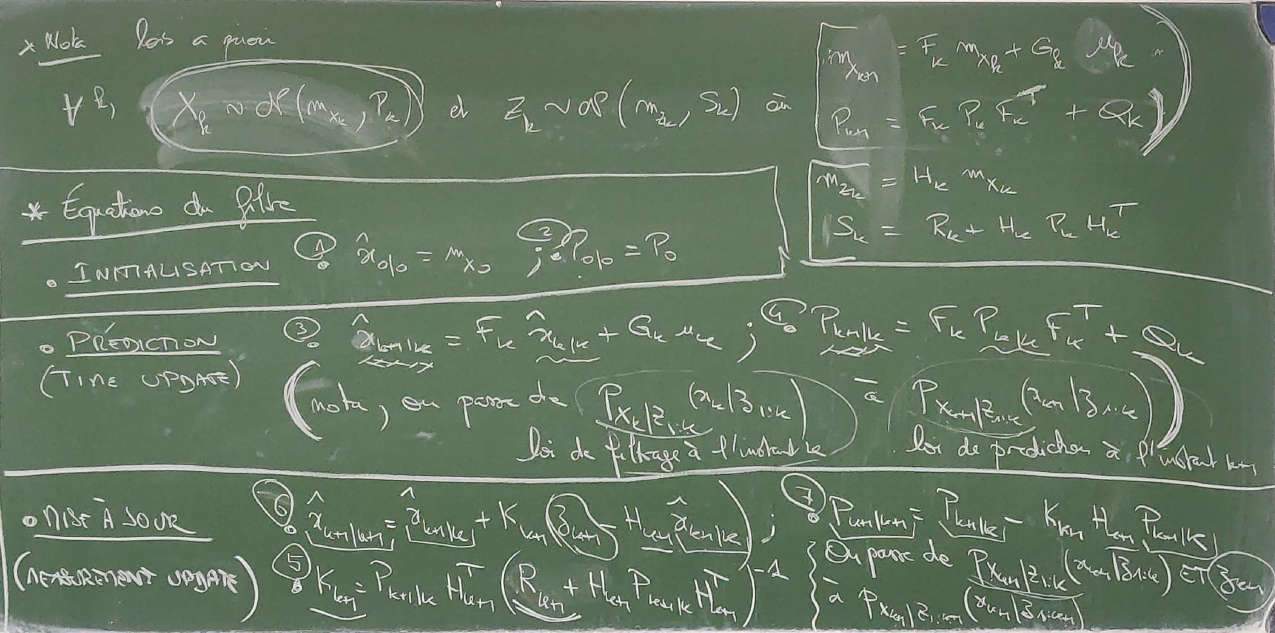 * Nota lois a priori
∀ k, X_k ~ N(m_{X_k}, P_k) et Z_k ~ N(m_{Z_k}, S_k) où
m_{X_{k+1}} = F_k m_{X_k} + G_k u_k
P_{k+1} = F_k P_k F_k^T + Q_k)
m_{Z_k} = H_k m_{X_k}
S_k = R_k + H_k P_k H_k^T
* Équations du filtre
• INITIALISATION ① x̂_{0|0} = m_{X_0} ; ② P_{0|0} = P_0
• PRÉDICTION ③ x̂_{k+1|k} = F_k x̂_{k|k} + G_k u_k ; ④ P_{k+1|k} = F_k P_{k|k} F_k^T + Q_k
(TIME UPDATE) (nota, on passe de P_{X_k|Z_{1:k}}(x_k|z_{1:k}) à P_{X_{k+1}|Z_{1:k}}(x_{k+1}|z_{1:k}))
loi de filtrage à l'instant k loi de prediction à l'instant k+1
• MISE À JOUR ⑥ x̂_{k+1|k+1} = x̂_{k+1|k} + K_{k+1}(z_{k+1} - H_{k+1} x̂_{k+1|k}) ; ⑦ P_{k+1|k+1} = P_{k+1|k} - K_{k+1} H_{k+1} P_{k+1|k}
(MEASUREMENT UPDATE) ⑤ K_{k+1} = P_{k+1|k} H_{k+1}^T (R_{k+1} + H_{k+1} P_{k+1|k} H_{k+1}^T)^{-1}
On passe de P_{X_{k+1}|Z_{1:k}}(x_{k+1}|z_{1:k}) ET z_{k+1}
à P_{X_{k+1}|Z_{1:k+1}}(x_{k+1}|z_{1:k+1})